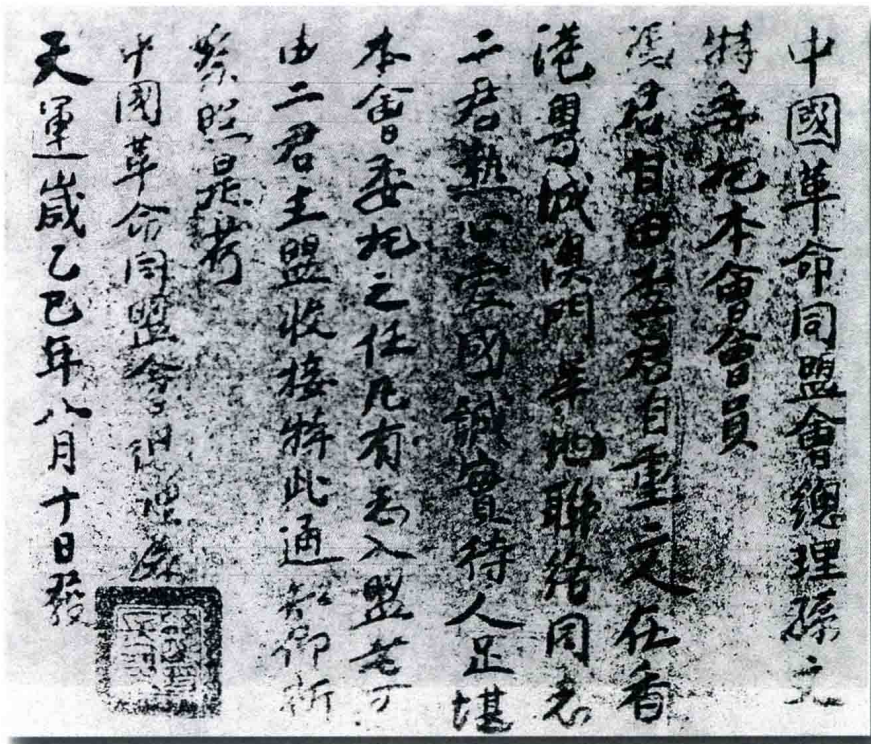 中國革命同盟會總理孫文
特委托本會會員
馮君自由李君自重二文在香
港粤城澳門等地聯絡同志
二君熱心愛國誠實待人足堪
本會委托之任凡有志入盟者可
由二君主盟收接特此通知仰祈
察照是荷
中國革命同盟會總理孫
天運歲乙巳年八月十日發